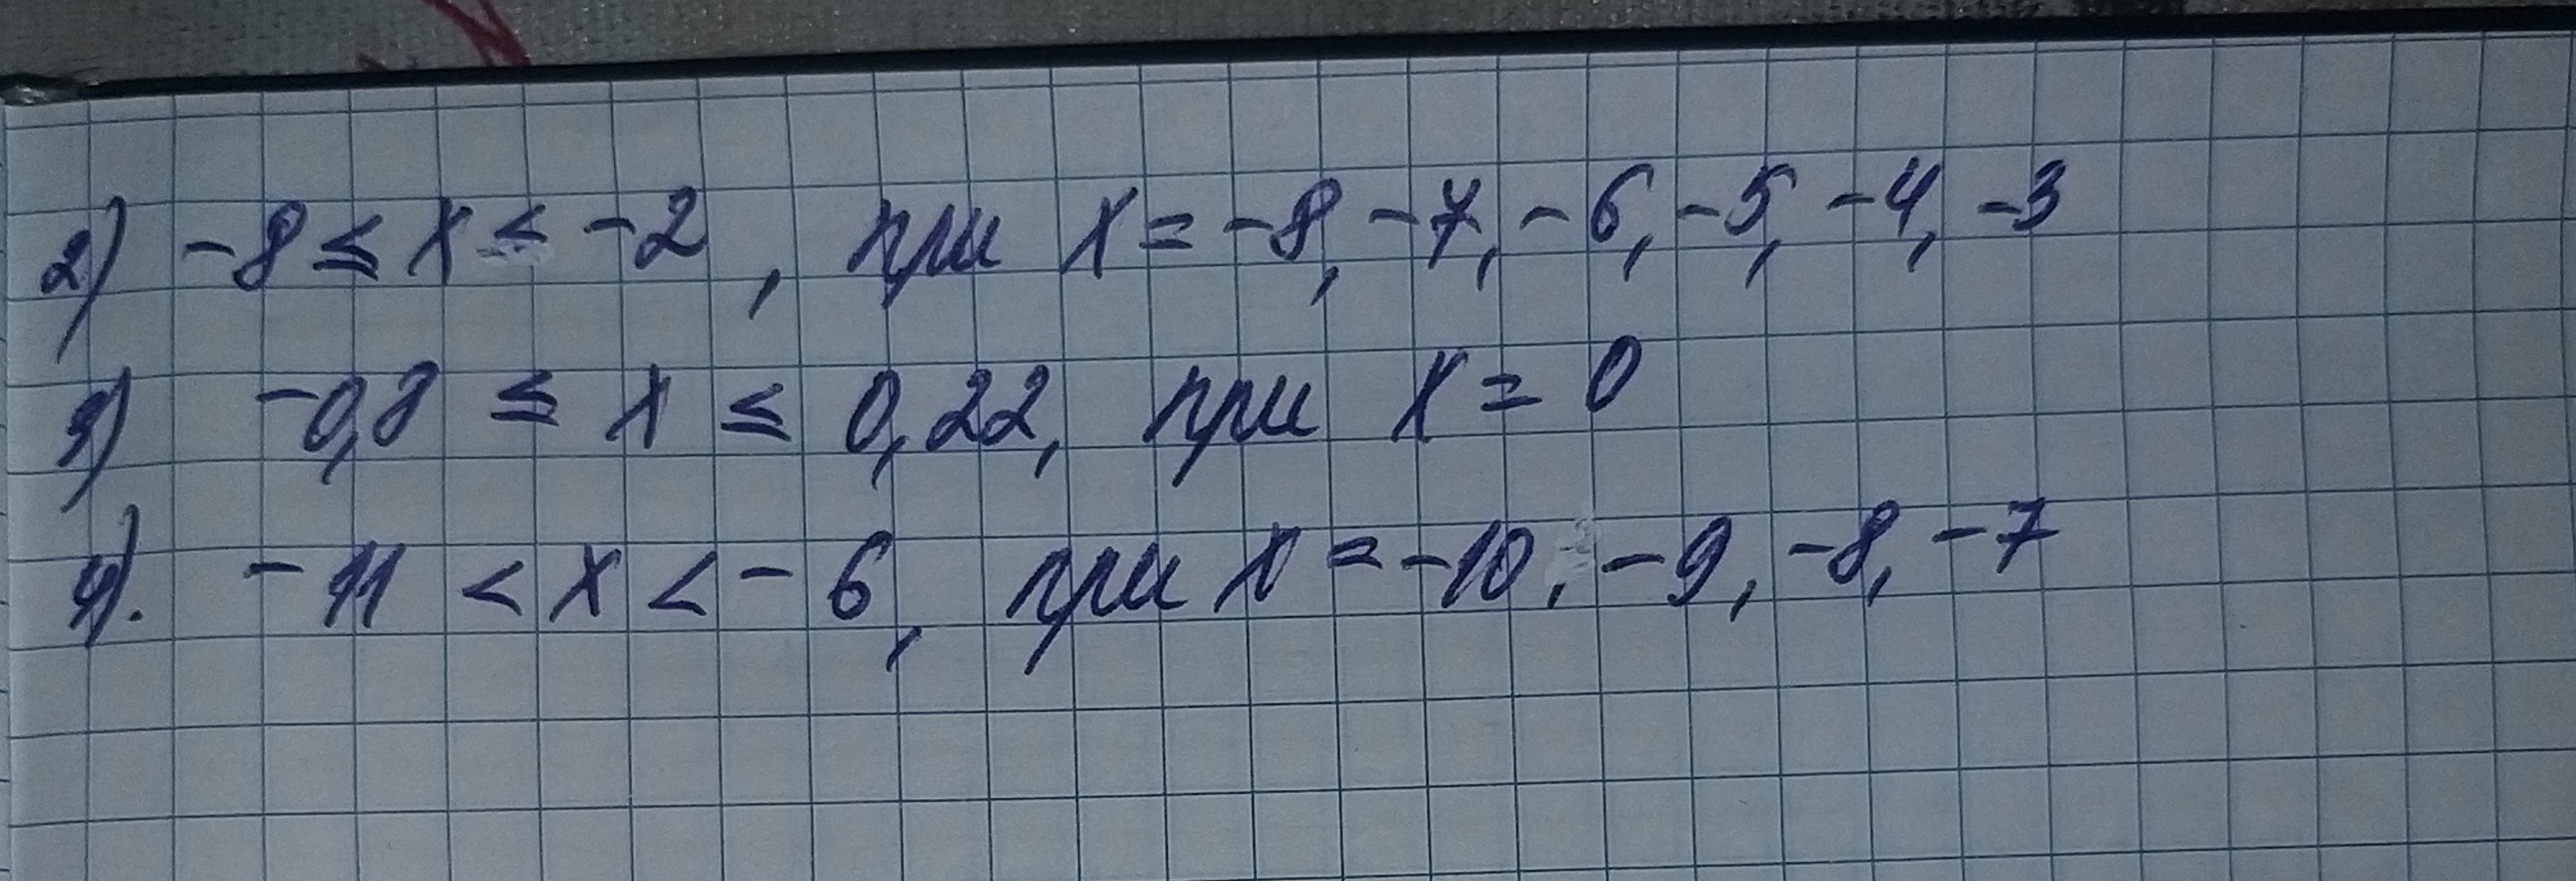 2) -8 ≤ x < -2, при x = -8, -7, -6, -5, -4, -3
3) -0,8 ≤ x ≤ 0,22, при x = 0
4). -11 < x < -6, при x = -10, -9, -8, -7